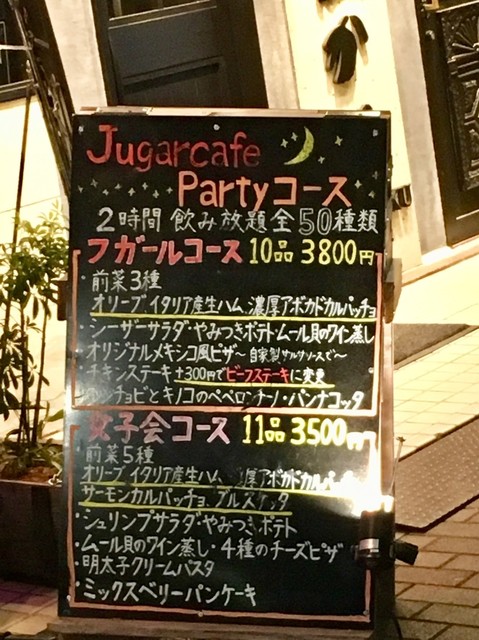 Jugarcafe
Partyコース
2時間 飲み放題全50種類
フガールコース 10品 3800円
・前菜3種
オリーブイタリア産生ハム、濃厚アボカドカルパッチョ
・シーザーサラダ・やみつきポテト・ムール貝のワイン蒸し
・オリジナルメキシコ風ピザ〜自家製サルサソースで〜
・チキンステーキ +300円でビーフステーキに変更
チョビとキノコのペペロンチーノ・パンナコッタ
女子会コース 11品 3500円
前菜5種
オリーブイタリア産生ハム 厚アボカドカルパ
サーモンカルパッチョ、ブルスケッタ
・シュリンプサラダ・やみつきポテト
・ムール貝のワイン蒸し・4種のチーズピザ
・明太子クリームパスタ
・ミックスベリーパンケーキ